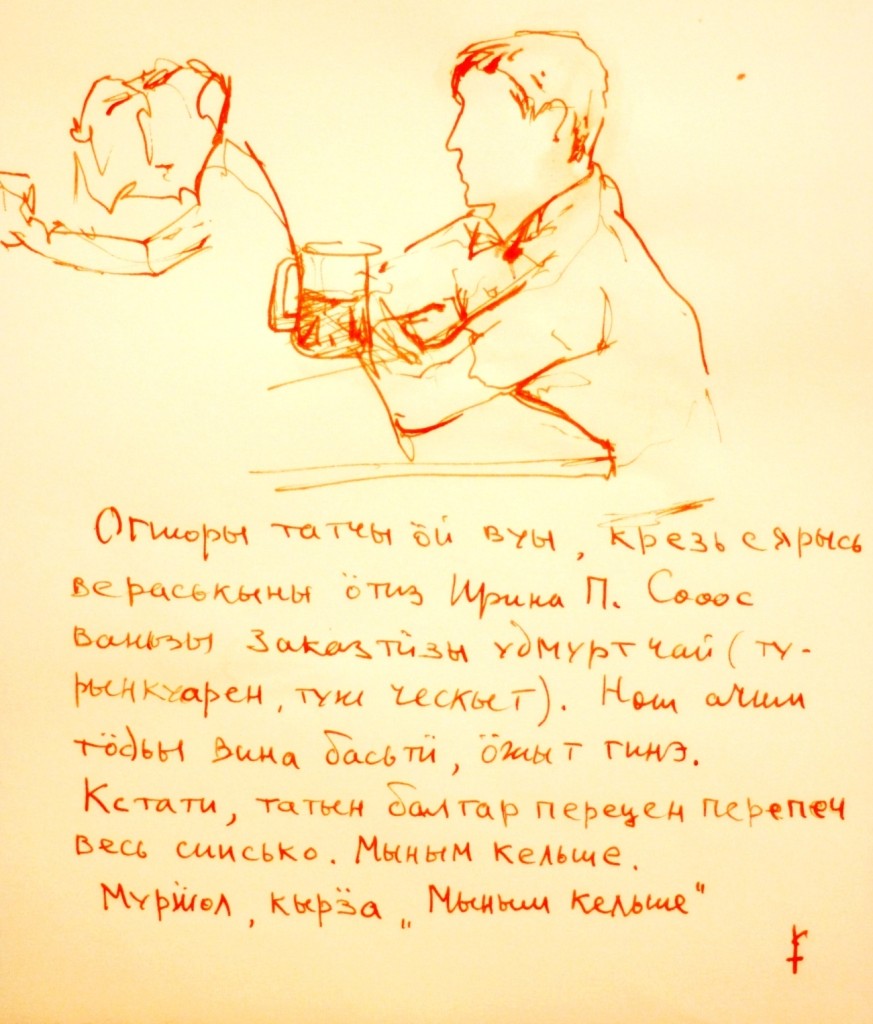 Огшоры татчы ӧй вуы, крезь сярысь
вераськыны ӧтиз Ирина П. Сооос
ваньзы заказтӥзы удмурт чай (ту-
рынкуарен, туж ческыт). Нош ачим
тӧдьы вина басьтӥ, ӧжыт гинэ.
Кстати, татын болгар перецен перепеч
весь сиисько. Мыным кельше.
Муржол, кырӟа „Мыным кельше"